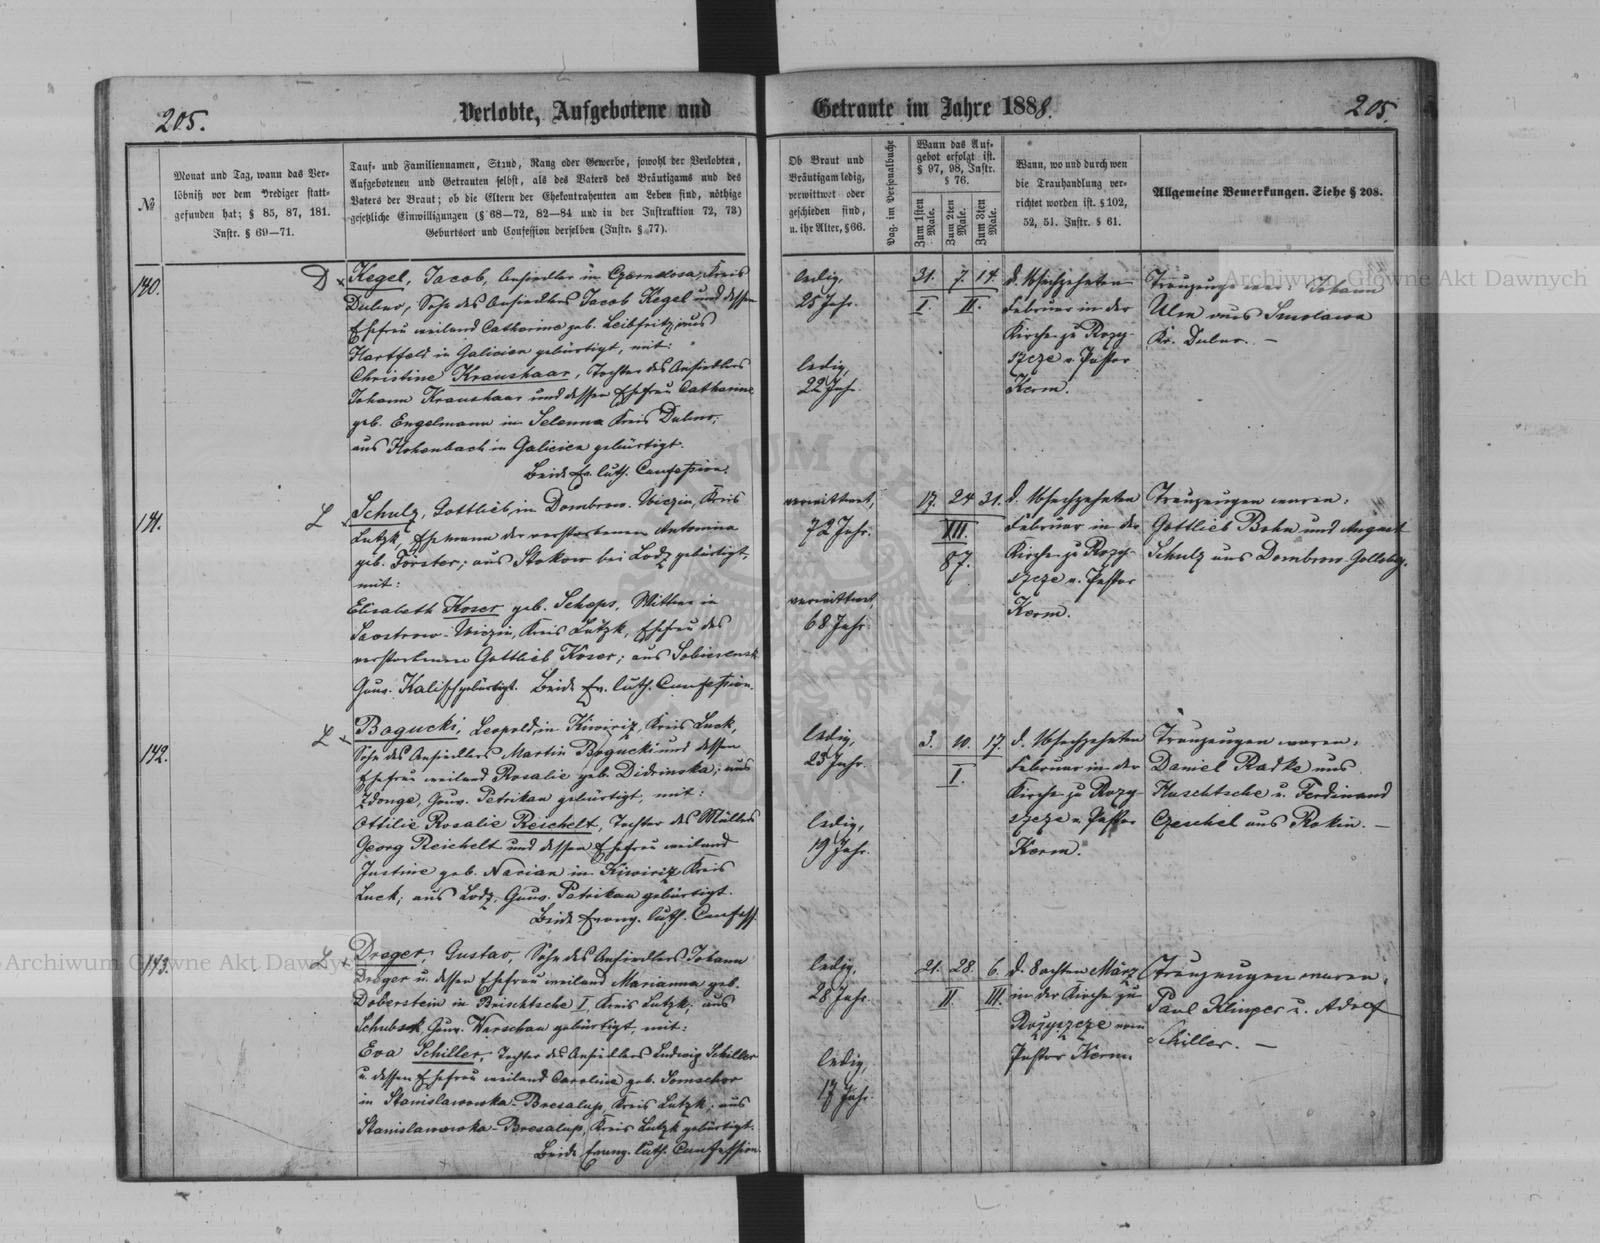 205.
Verlobte, Aufgebotene und
Getraute im Jahre 1888.
205.
№
Monat und Tag, wann das Ver-
löbniß vor dem Prediger statt-
gefunden hat; § 85, 87, 181.
Instr. § 69—71.
Tauf- und Familiennamen, Stand, Rang oder Gewerbe, sowohl der Verlobten,
Aufgebotenen und Getrauten selbst, als des Vaters des Bräutigams und des
Vaters der Braut; ob die Eltern der Ehekontrahenten am Leben sind, nöthige
gesetzliche Einwilligungen (§ 68—72, 82—84 und in der Instruktion 72, 73)
Geburtsort und Confession derselben (Instr. § 77).
Ob Braut und
Bräutigam ledig,
verwittwet oder
geschieden sind,
u. ihr Alter, § 66.
Pag. im Personalbuche
Wann das Auf-
gebot erfolgt ist.
§ 97, 98, Instr.
§ 76.
Zum 1sten Male.
Zum 2ten Male.
Zum 3ten Male.
Wann, wo und durch wen
die Trauhandlung ver-
richtet worden ist. § 102,
52, 51. Instr. § 61.
Allgemeine Bemerkungen. Siehe § 208.
140.
D
Kegel, Jacob, Ansiedler in Kreis
Dubno, Sohn des Ansiedlers Jacob Kegel und dessen
Ehefrau weiland Catharina geb. Leibfritz, aus
Hartfeld in Galizien gebürtig, mit:
Christine Kraushaar, Tochter des Ansiedlers
Johann Kraushaar und dessen Ehefrau Catharine
geb. Engelmann in Selenna Kreis Dubno,
aus Hohenbach in Galicien gebürtigt.
Beide Ev. luth. Confession.
ledig,
25 Jahr.
ledig,
22 Jahr.
31. 7. 14.
I. II.
d. Achtzehnten
Februar in der
Kirche zu Rozy-
szcze v. Pastor
Kerm.
Trauzeuge war: Johann
Ulm aus
Kr. Dubno. —
141.
L
Schulz, Gottlieb, in Dombrow. Kreis
Lutzk, Ehemann der verstorbenen Antonina
geb. Förster; aus Stokow bei Lodz gebürtigt,
mit:
Elisabeth Koser geb. Schöps, Wittwe in
Kreis Lutzk, Ehefrau des
verstorbenen Gottlieb Koser; aus
Gouv. Kalisch gebürtigt. Beide Ev. luth. Confession.
verwittwet,
72 Jahr.
verwittwet,
68 Jahr.
17. 24 31.
XII.
87.
d. Achtzehnten
Februar in der
Kirche zu Rozy-
szcze v. Pastor
Kerm.
Trauzeugen waren:
Gottlieb Bohn und August
Schulz aus Dombrow
142.
L
Bogucki, Leopold, in Kiwiriz, Kreis Luck,
Sohn des Ansiedlers Martin Bogucki und dessen
Ehefrau weiland Rosalie geb. Didrinska; aus
Gouv. Petrikau gebürtigt, mit:
Ottilie Rosalie Reichelt, Tochter des Müllers
Georg Reichelt und dessen Ehefrau weiland
Justine geb. Navian in Kiwiriz Kreis
Luck; aus Lodz, Gouv. Petrikau gebürtigt.
Beide Evang. luth. Confess.
ledig,
23 Jahr.
ledig,
19 Jahr.
3. 10. 17.
I.
d. Achtzehnten
Februar in der
Kirche zu Rozy-
szcze v. Pastor
Kerm.
Trauzeugen waren:
Daniel Radke aus
Huschtsche u. Ferdinand
Czeschel aus Rokin. —
143.
L
Dreger, Gustav, Sohn des Ansiedlers Johann
Dreger u. dessen Ehefrau weiland Marianna geb.
Doberstein in Brischtsche I, Kreis Lutzk; aus
Schubsk, Gouv. Warschau gebürtigt, mit:
Eva Schiller, Tochter des Ansiedlers Ludwig Schiller
u. dessen Ehefrau weiland Caroline geb. Somschor
in Stanislawowka-Bresalup, Kreis Lutzk; aus
Stanislawowka-Bresalup, Kreis Lutzk gebürtigt.
Beide Evang. luth. Confession.
ledig,
28 Jahr.
ledig,
17 Jahr.
21. 28. 6.
II. III.
d. 8 achten März
in der Kirche zu
Rozyszcze vom
Pastor Kerm.
Trauzeugen waren:
Paul Klinger u. Adolf
Schiller. —
Archiwum Główne Akt Dawnych
Archiwum Główne Akt Dawnych